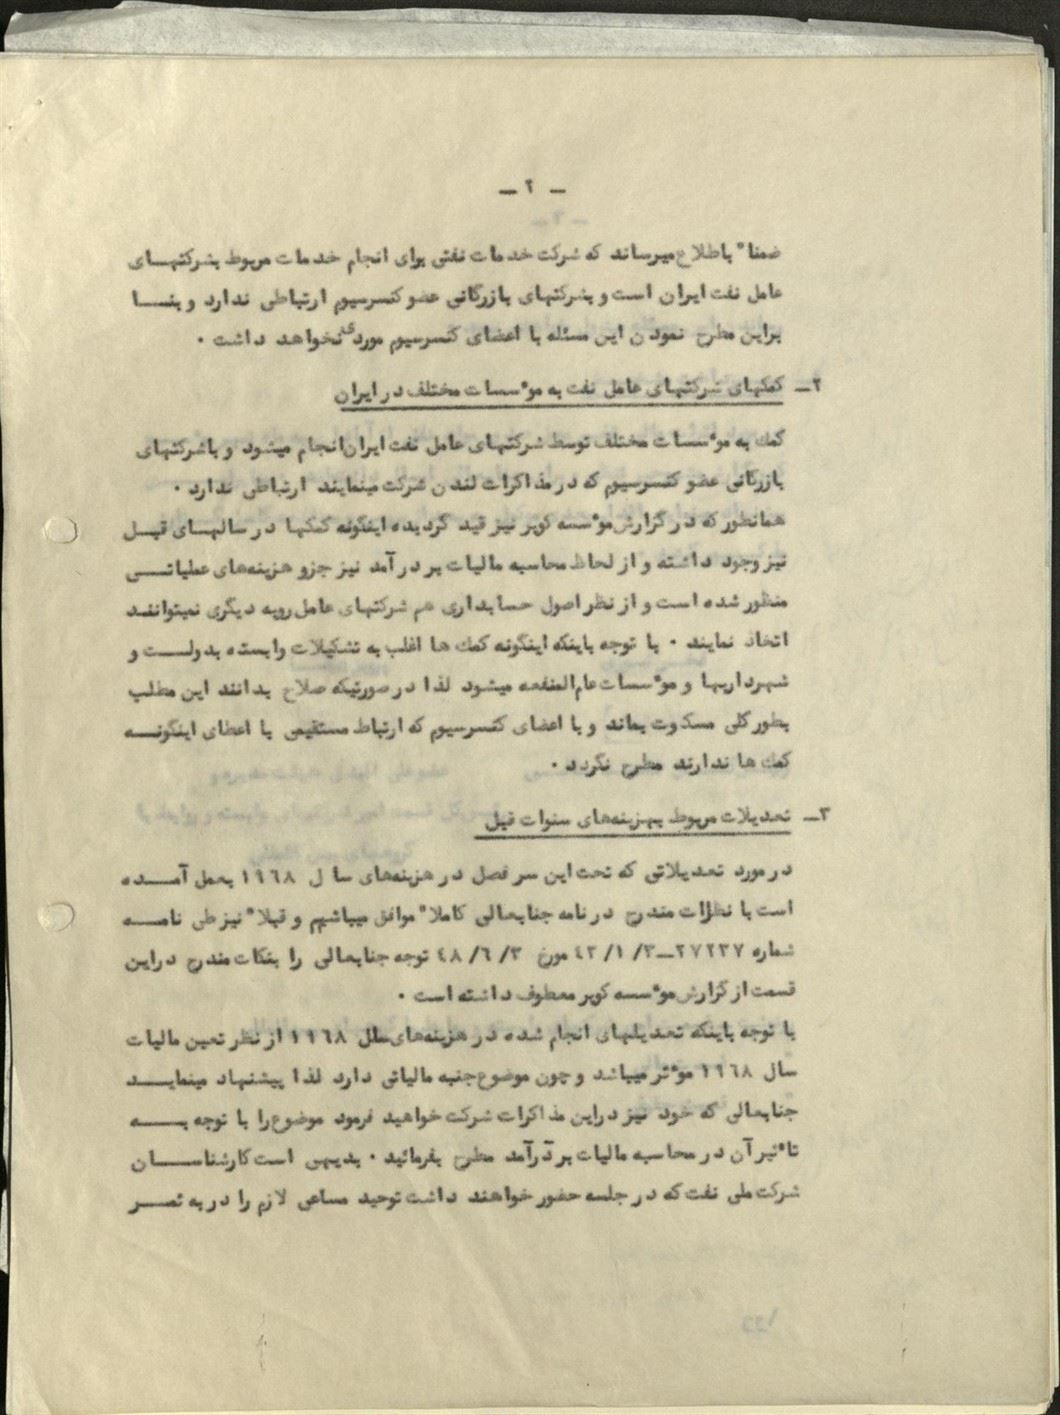 ـ ۲ ـ
ضمنا" باطلاع میرساند که شرکت خدمات نفتی برای انجام خدمات مربوط بشرکتهای
عامل نفت ایران است و بشرکتهای بازرگانی عضو کنسرسیوم ارتباطی ندارد و بنا
براین مطرح نمودن این مسئله با اعضای کنسرسیوم موردی نخواهد داشت .
۲ـ کمکهای شرکتهای عامل نفت به موءسسات مختلف در ایران
کمک به موءسسات مختلف توسط شرکتهای عامل نفت ایران انجام میشود و باشرکتهای
بازرگانی عضو کنسرسیوم که در مذاکرات لندن شرکت مینمایند ارتباطی ندارد .
همانطور که در گزارش موءسسه کوپر نیز قید گردیده اینگونه کمکها در سالهای قبل
نیز وجود داشته و از لحاظ محاسبه مالیات بر درآمد نیز جزو هزینه‌های عملیاتی
منظور شده است و از نظر اصول حسابداری هم شرکتهای عامل رویه دیگری نمیتوانند
اتخاذ نمایند . با توجه باینکه اینگونه کمک ها اغلب به تشکیلات وابسته بدولت و
شهرداریها و موءسسات عام‌المنفعه میشود لذا در صورتیکه صلاح بدانند این مطلب
بطور کلی مسکوت بماند و با اعضای کنسرسیوم که ارتباط مستقیمی با اعطای اینگونه
کمک ها ندارند مطرح نگردد .
۳ـ تعدیلات مربوط بهزینه‌های سنوات قبل
در مورد تعدیلاتی که تحت این سر فصل در هزینه‌های سال ۱۹۶۸ بعمل آمده
است با نظرات مندرج در نامه جنابعالی کاملا" موافق میباشیم و قبلا" نیز طی نامه
شماره ۲۷۲۳۷ـ۳/ ۱/ ۴۳ مورخ ۳/ ۶/ ۴۸ توجه جنابعالی را بنکات مندرج دراین
قسمت از گزارش موءسسه کوپر معطوف داشته است .
با توجه باینکه تعدیلهای انجام شده در هزینه‌های سال ۱۹۶۸ از نظر تعین مالیات
سال ۱۹۶۸ موءثر میباشد و چون موضوع جنبه مالیاتی دارد لذا پیشنهاد مینماید
جنابعالی که خود نیز دراین مذاکرات شرکت خواهید فرمود موضوع را با توجه به
تاءثیر آن در محاسبه مالیات بر درآمد مطرح بفرمائید . بدیهی است کارشناسان
شرکت ملی نفت که در جلسه حضور خواهند داشت توحید مساعی لازم را در به ثمر